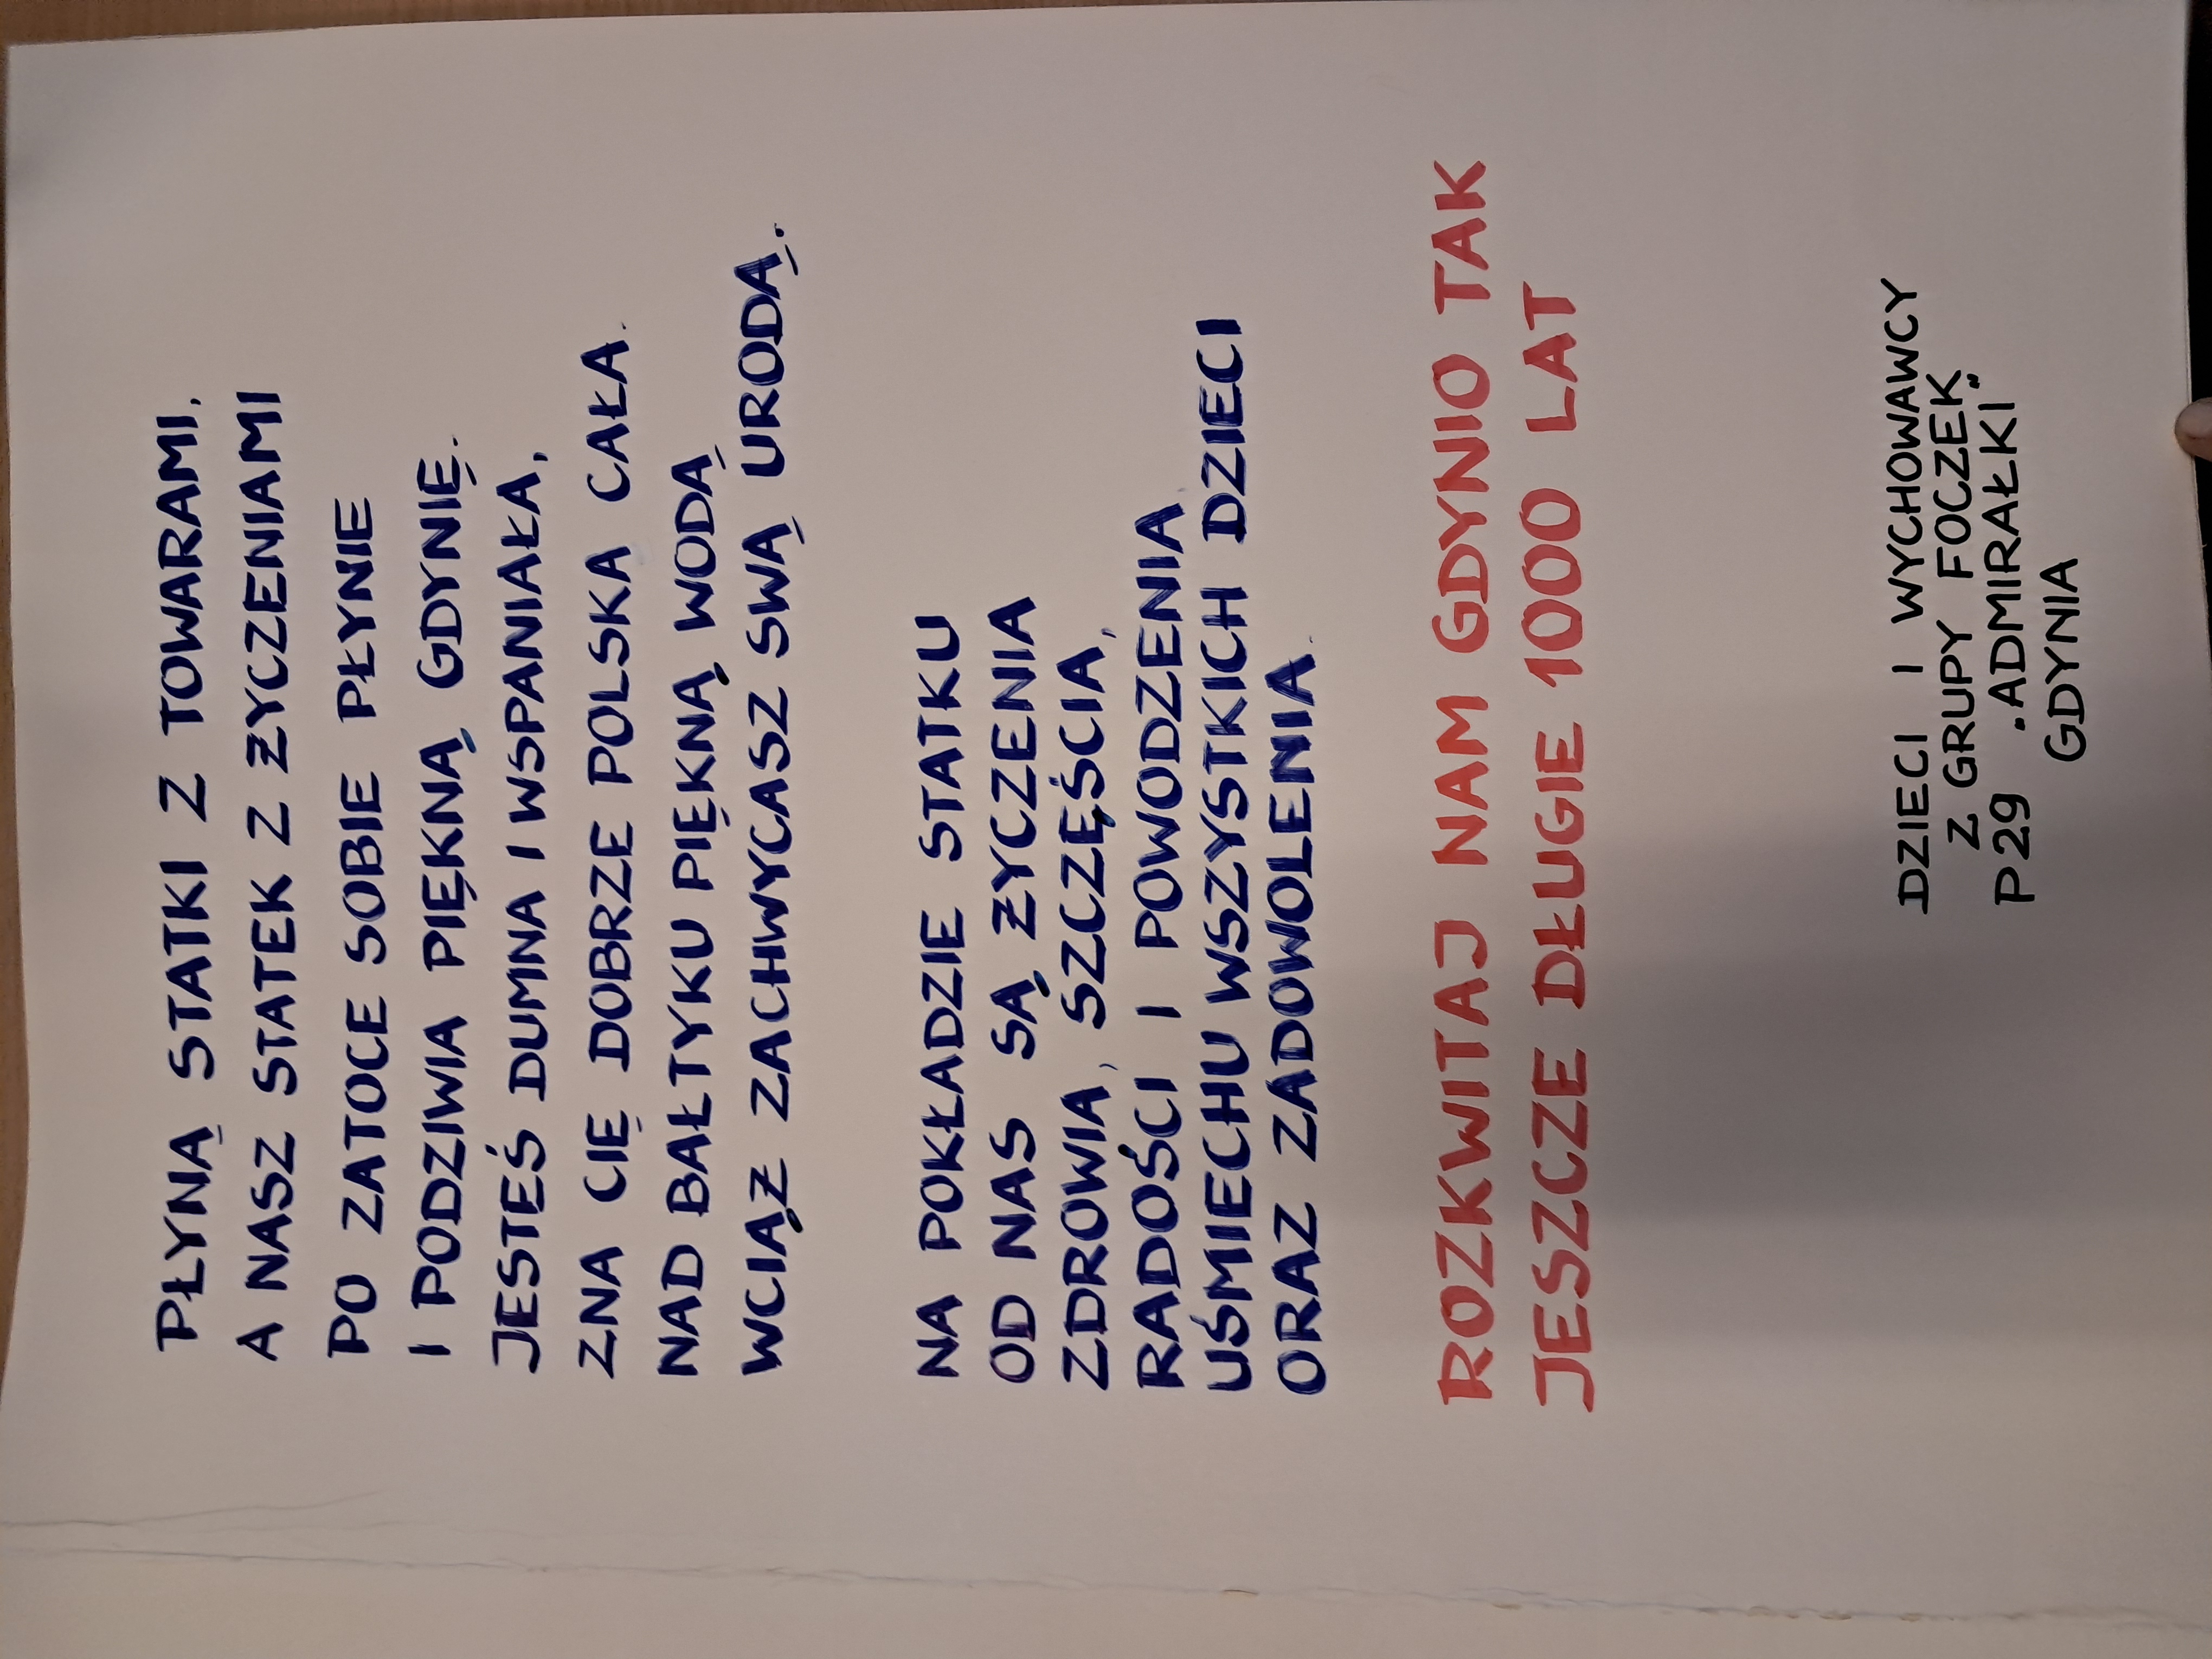 PŁYNĄ STATKI Z TOWARAMI,
A NASZ STATEK Z ŻYCZENIAMI
PO ZATOCE SOBIE PŁYNIE
I PODZIWIA PIĘKNĄ GDYNIĘ.
JESTEŚ DUMNA I WSPANIAŁA,
ZNA CIĘ DOBRZE POLSKA CAŁA.
NAD BAŁTYKU PIĘKNĄ WODĄ
WCIĄŻ ZACHWYCASZ SWĄ URODĄ.
NA POKŁADZIE STATKU
OD NAS SĄ ŻYCZENIA
ZDROWIA, SZCZĘŚCIA,
RADOŚCI I POWODZENIA
UŚMIECHU WSZYSTKICH DZIECI
ORAZ ZADOWOLENIA.
ROZKWITAJ NAM GDYNIO TAK
JESZCZE DŁUGIE 1000 LAT
DZIECI I WYCHOWAWCY
Z GRUPY FOCZEK
P29 "ADMIRAŁKI"
GDYNIA